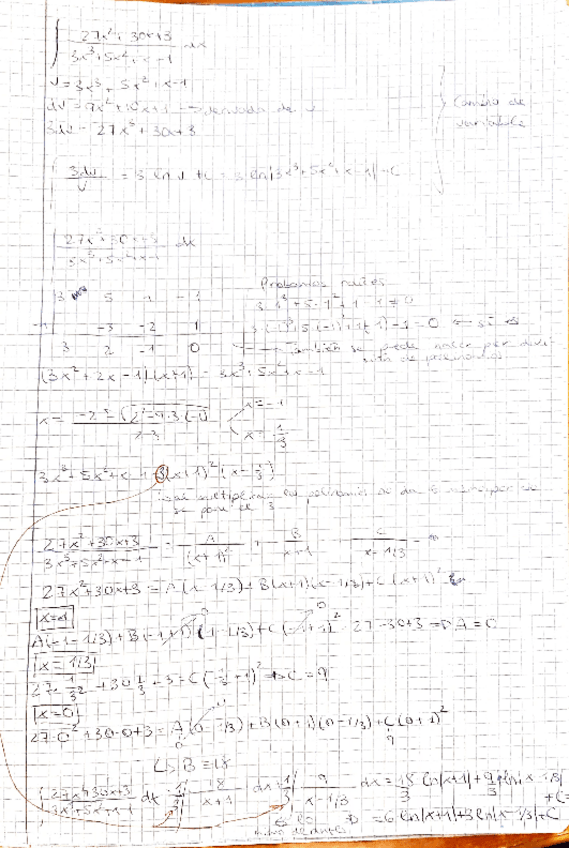 ∫ (27x²+30x+3)/(3x³+5x²+x-1) dx
v = 3x³+5x²+x-1
dv = 9x²+10x+1 → derivada de v
3dv = 27x²+30x+3
Cambio de
variable
∫ 3dv/v = 3 ln v + C = 3 ln|3x³+5x²+x-1|+C
∫ (27x²+30x+3)/(3x³+5x²+x-1) dx
Probamos raíces
3 5 1 -1
3·1³+5·1²+1-1 ≠ 0
-1 -3 -2 1
3(-1)³+5(-1)²+(-1)-1=0 ← sí es
3 2 -1 0
también se puede hacer por división de polinomios
(3x²+2x-1)(x+1) = 3x³+5x²+x-1
x = (-2±√(2²-4·3·(-1)))/(2·3)
x=-1
x=1/3
3x³+5x²+x-1 = 3(x+1)²(x-1/3)
se pone el 3
(27x²+30x+3)/(3x³+5x²+x-1) = A/(x+1)² + B/(x+1) + C/(x-1/3) =
27x²+30x+3 = A(x-1/3)+B(x+1)(x-1/3)+C(x+1)²
x=-1
A(-1-1/3)+B(-1+1)(-1-1/3)+C(-1+1)² = 27-30+3 ⇒ A=0
x=1/3
27·1/3²+30·1/3+3=C(1/3+1)² ⇒ C=9
x=0
27·0²+30·0+3 = A(0-1/3)+B(0+1)(0-1/3)+C(0+1)²
↳ B=18
∫ (27x²+30x+3)/(3x³+5x²+x-1) dx = 1/3 ∫ 18/(x+1) dx + 1/3 ∫ 9/(x-1/3) dx = 18/3 ln|x+1| + 9/3 ln|x-1/3| +C=
= 6 ln|x+1|+3 ln|x-1/3|+C